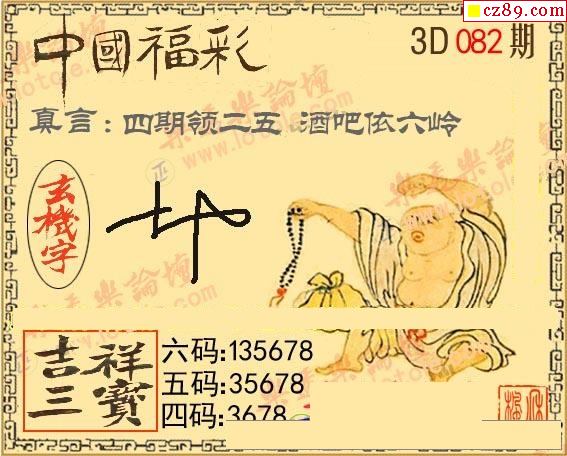 cz89.com
中國福彩
3D 082 期
真言：四期领二五 酒吧依六岭
玄機字
吉祥三寶
六码:135678
五码:35678
四码:3678